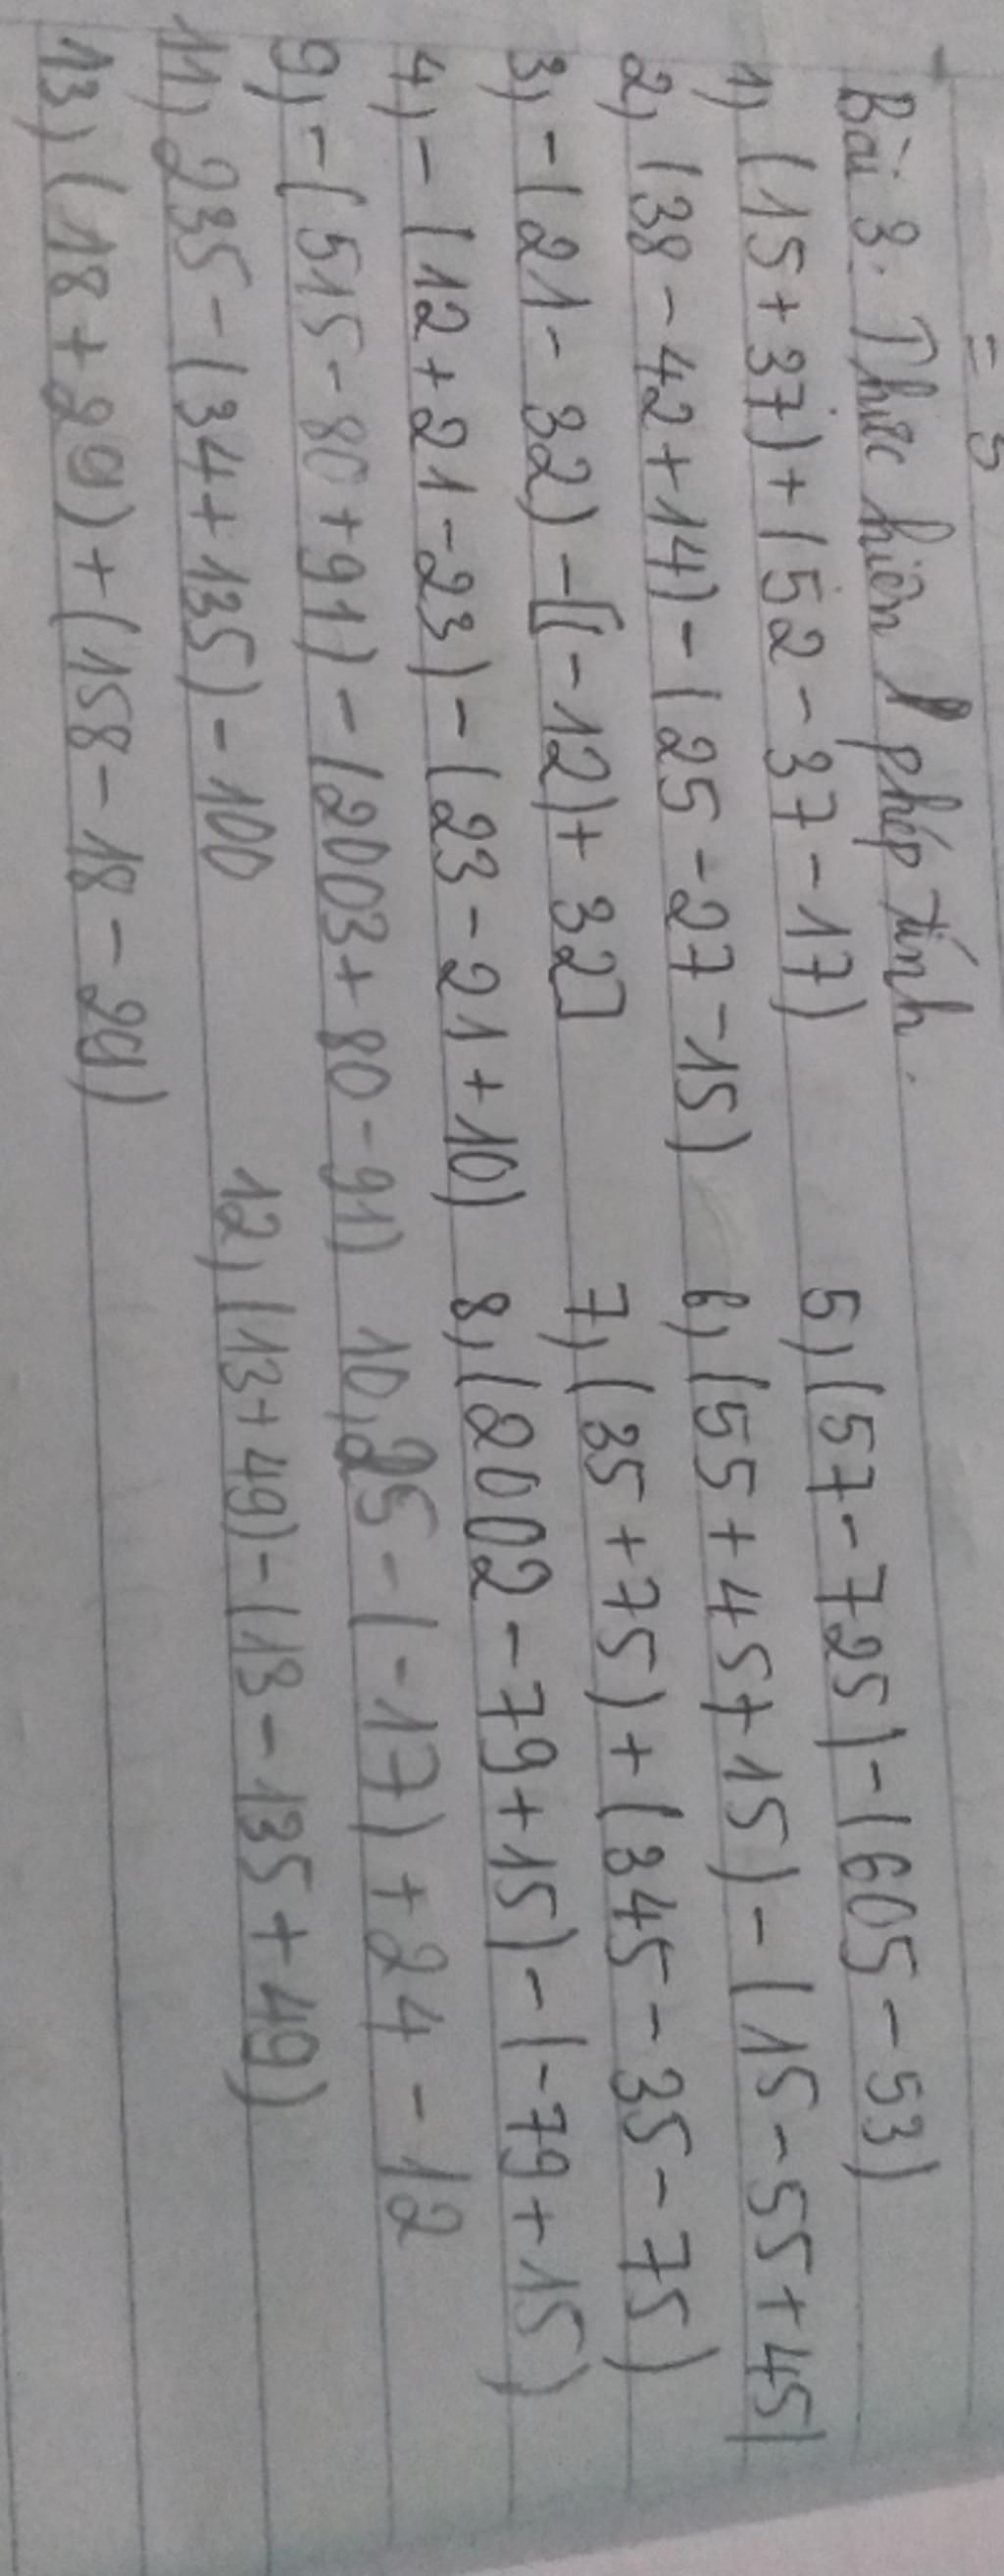 = 5
Bài 3. Thực hiện phép tính.
1, (15+37)+(52-37-17)
5, (57-725)-(605-53)
2, (38-42+14)-(25-27-15)
6, (55+45+15)-(15-55+45)
3, -(21-32)-[(-12)+32]
7, (35+75)+(345-35-75)
4, -(12+21-23)-(23-21+10)
8, (2002-79+15)-(-79+15)
9, -(515-80+91)-(2003+80-91)
10, 25-(-17)+24-12
11, 235-(34+135)-100
12, (13+49)-(13-135+49)
13, (18+29)+(158-18-29)